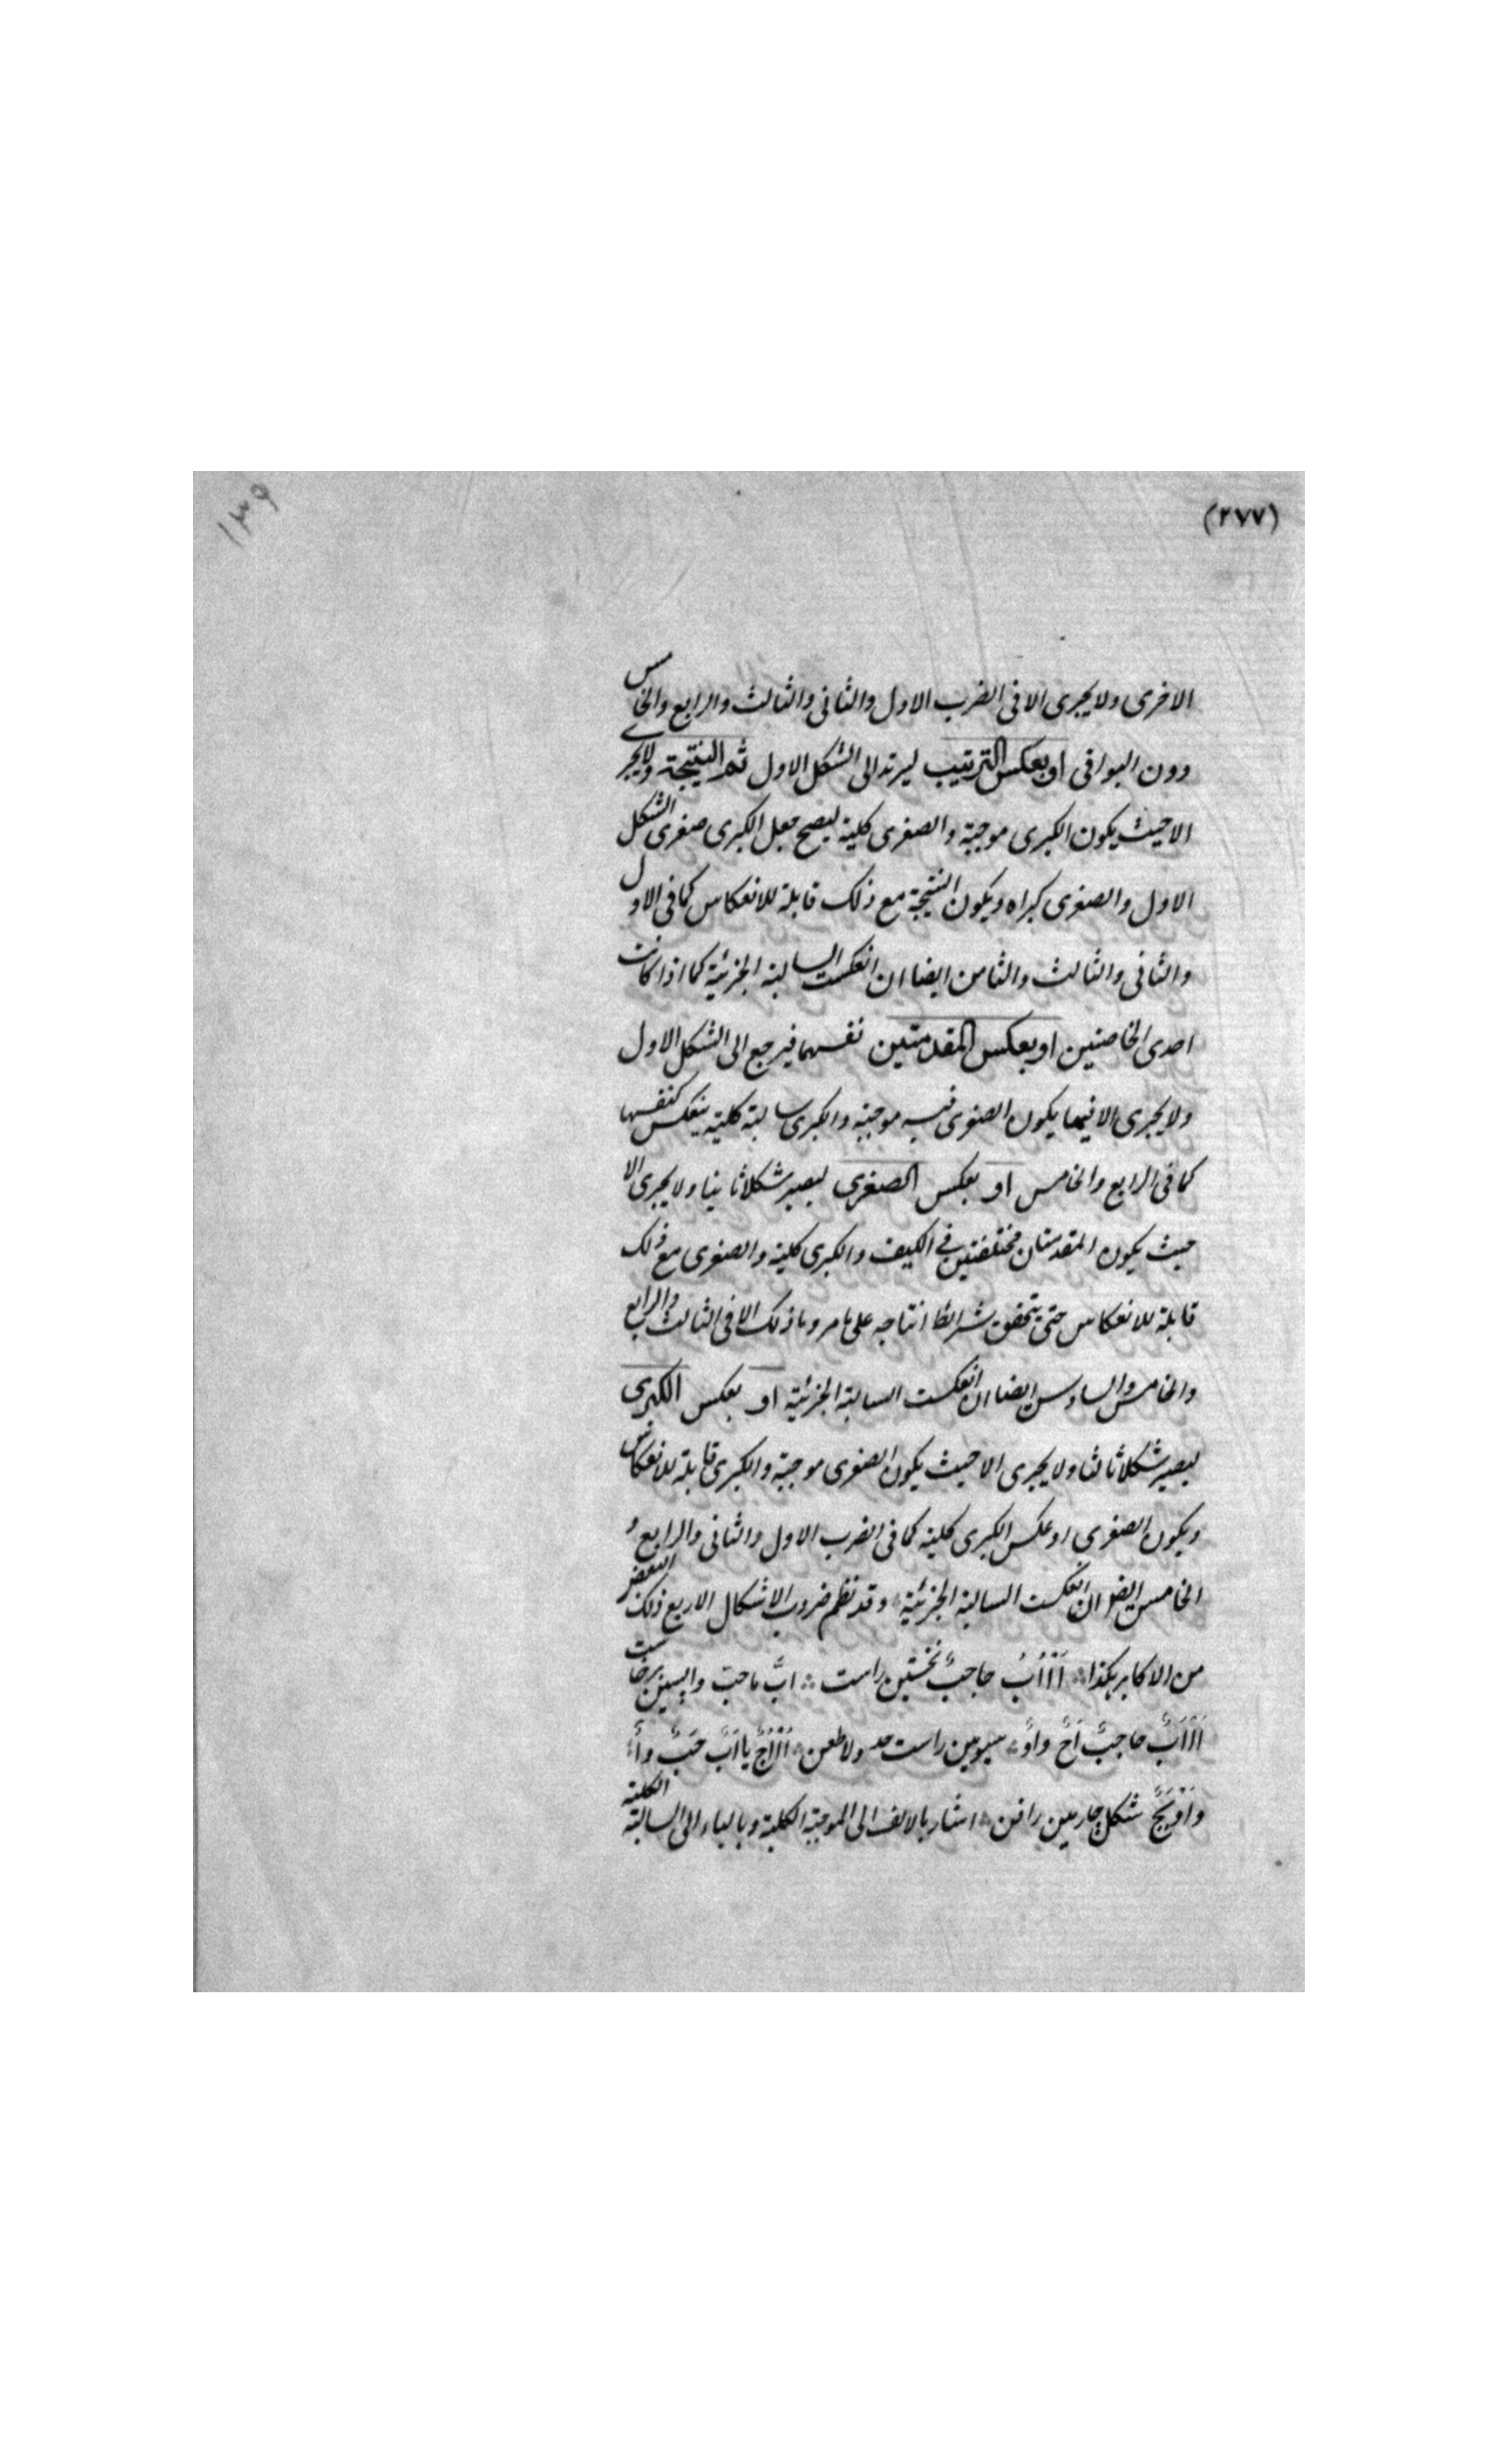 (٢٧٧)
١٣٩
الاخرى ولا يجرى الا فى الضرب الاول والثانى والثالث والرابع والخامس
دون البواقى او بعكس الترتيب ليرتد الى الشكل الاول ثم النتيجة ولا يجرى
الا حيث يكون الكبرى موجبة والصغرى كلية ليصح جعل الكبرى صغرى الشكل
الاول والصغرى كبراه ويكون النتيجة مع ذلك قابلة للانعكاس كما فى الاول
والثانى والثالث والثامن ايضا ان انعكست السالبة الجزئية كما اذا كانت
احدى الخاصتين او بعكس المقدمتين نفسهما فيرجع الى الشكل الاول
ولا يجرى الا فيما يكون الصغرى فيه موجبة والكبرى سالبة كلية ينعكس كنفسها
كما فى الرابع والخامس او بعكس الصغرى ليصير شكلا ثانيا ولا يجرى الا
حيث يكون المقدمتان مختلفتين فى الكيف والكبرى كلية والصغرى مع ذلك
قابلة للانعكاس حتى يتحقق شرائط انتاجه على ما مر وما ذلك الا فى الثالث والرابع
والخامس والسادس ايضا ان انعكست السالبة الجزئية او بعكس الكبرى
ليصير شكلا ثالثا ولا يجرى الا حيث يكون الصغرى موجبة والكبرى قابلة للانعكاس
ويكون الصغرى او عكس الكبرى كلية كما فى الضرب الاول والثانى والرابع و
الخامس ايضا ان انعكست السالبة الجزئية وقد نظم ضروب الاشكال الاربع ذلك البعض
من الاكابر هكذا حاجب نخستين راست
حاجب سيومين راست
شكل چارمين اشار بالالف الى الموجبة الكلية وبالباء الى السالبة الكلية